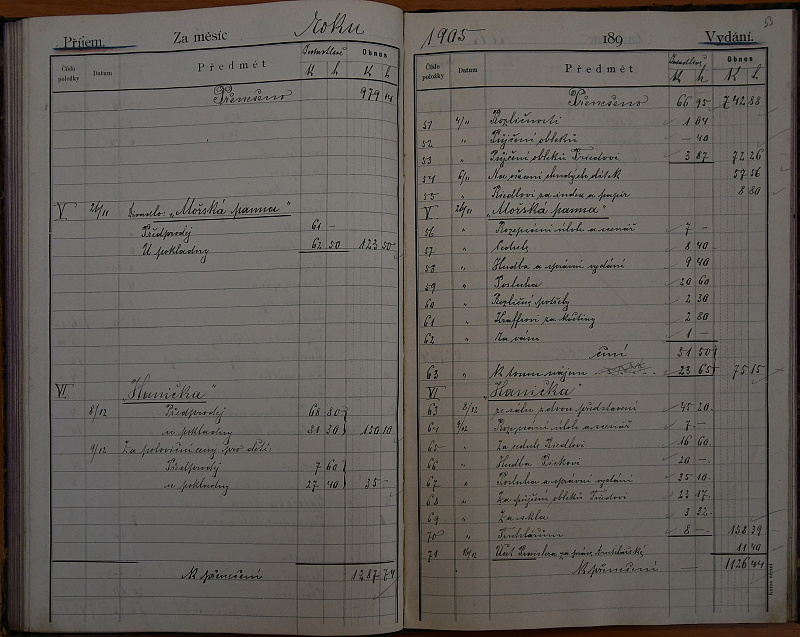 Příjem. Za měsíc roku
Číslo položky Datum Předmět Jednotlivě K h Obnos K h
Přenešeno 979 14
V. 26/11 Divadlo: „Mořská panna"
Předprodej 61 –
U pokladny 62 50 123 50
VI. „Hanička"
8/12 Předprodej 68 80
u pokladny 81 30 150 10
9/12 Za poloviční ceny pro děti:
Předprodej 7 60
u pokladny 27 40 35 –
K přenešení 1287 74
53
1905 189 Vydání.
Číslo položky Datum Předmět Jednotlivě K h Obnos K h
Přenešeno 66 95 742 88
51 4/11 Rozličnosti 1 04
52 " Půjčení obleků – 40
53 " Půjčení obleků Friedovi 3 87 72 26
54 6/11 Na ošacení chudých dítek 57 56
55 Riedlovi za index a papír 8 80
V. 26/11 „Mořská panna"
56 " Rozepsání úloh a scenář 7 –
57 " Cedule 8 40
58 " Hudba a správní vydání 9 40
59 " Posluha 20 60
60 " Rozličné potřeby 2 30
61 " Krafferovi za květiny 2 80
62 " Za vám 1 –
činí 51 50
63 " K tomu nájem 23 65 75 15
VI. „Hanička"
63 8/12 ze sálu z dvou představení 45 20
64 9/12 Rozepsání úloh a scenář 7 –
65 " Za cedule Riedlovi 16 60
66 " Hudba Pickovi 20 –
67 " Posluha a správní vydání 35 10
68 " Za půjčení obleků Friedovi 23 17
69 " Za skla 3 32
70 " Truhlářům 8 – 158 39
71 10/12 za práce truhlářské 11 40
K přenešení 1126 44